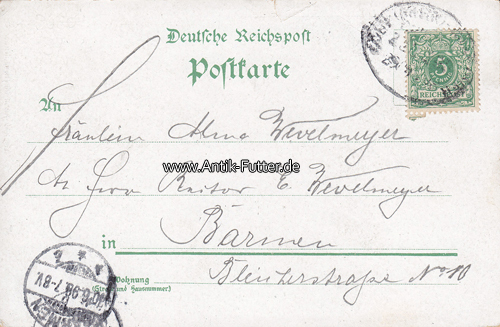 Deutsche Reichspost
Postkarte
An
Fräulein Alma Wevelmeyer
www.Antik-Futter.de
Ar. Herrn Rektor E. Wevelmeyer
in Barmen
Wohnung
(Straße und Hausnummer)
Bleicherstraße No 10
5
REICHSPOST
BARMEN
7-8V.